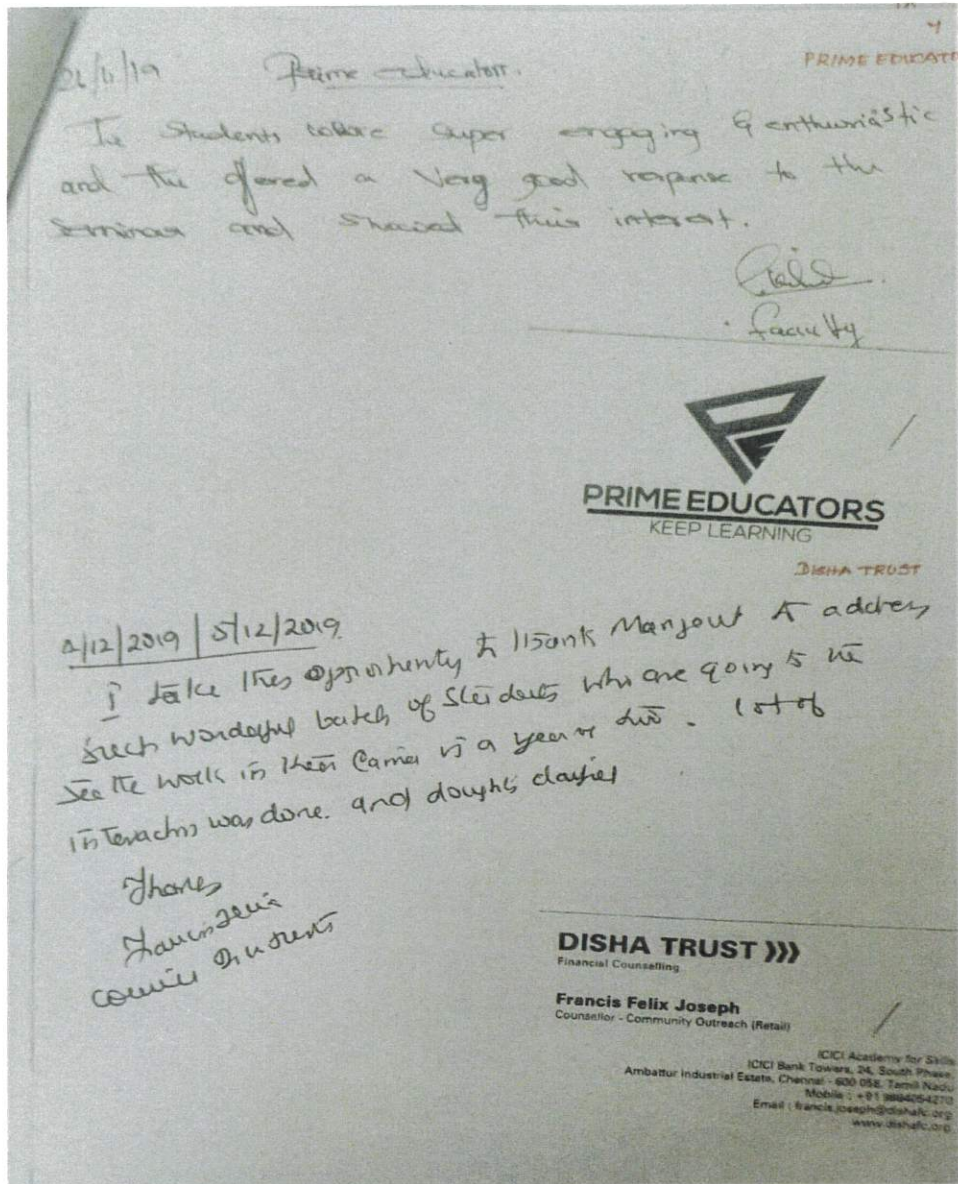 4
PRIME EDUCATO
26/11/19 Prime educators.
The Students were super engaging & enthusiastic
and the offered a Very good response to the
Seminar and showed their interest.
Faculty
PRIME EDUCATORS
KEEP LEARNING
DISHA TRUST
4/12/2019 | 5/12/2019
I take this opportunity to thank to address
such wonderful batch of Students who are going to
see the work in their in a year or two. lot of
interaction was done. and doughts
Thanks
DISHA TRUST )))
Financial Counselling
Francis Felix Joseph
Counsellor - Community Outreach (Retail)
ICICI Academy for Skills
ICICI Bank Towers, 24, South Phase,
Ambattur Industrial Estate, Chennai - 600 058, Tamil Nadu
Mobile : +91 9884054270
Email : francis.joseph@dishafc.org
www.dishafc.org